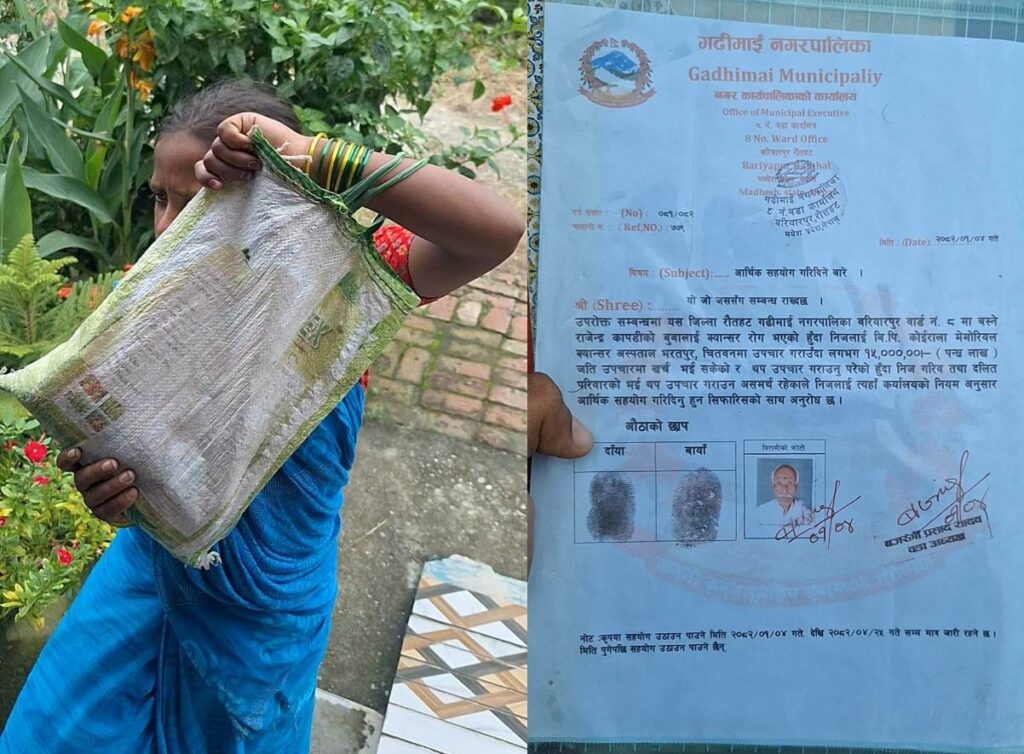 गढीमाई नगरपालिका
Gadhimai Municipaliy
नगर कार्यपालिकाको कार्यालय
Office of Municipal Executive
८ नं. वडा कार्यालय
8 No. Ward Office
बरियारपुर रौतहट
Bariyapur, Rauthat
Madhesh, state,
गढीमाई नगरपालिका
८ नं. वडा कार्यालय
बरियारपुर, रौतहट
मधेश प्रदेश, नेपाल
पत्र संख्या : - (No) : ०८१/०८२
चलानी नं : ( Ref.NO.) : ७७९
मिति : (Date): २०८२/०१/०४ गते
विषय : (Subject):..... आर्थिक सहयोग गरिदिने बारे ।
श्री (Shree) :........ यो जो जससँग सम्बन्ध राख्दछ ।
उपरोक्त सम्बन्धमा यस जिल्ला रौतहट गढीमाई नगरपालिका बरियारपुर वार्ड नं. ८ मा बस्ने
राजेन्द्र कापडीको बुबालाई क्यान्सर रोग भएको हुँदा निजलाई बि.पि. कोईराला मेमोरियल
क्यान्सर अस्पताल भरतपुर, चितवनमा उपचार गराउँदा लगभग १५,०००,००।– ( पन्ध्र लाख )
जति उपचारमा खर्च भई सकेको र थप उपचार गराउनु परेको हुँदा निज गरिव तथा दलित
परिवारको भई थप उपचार गराउन असमर्थ रहेकाले निजलाई त्यहाँ कार्यालयको नियम अनुसार
आर्थिक सहयोग गरिदिनु हुन सिफारिसको साथ अनुरोध छ ।
औठाको छाप
दाँया बायाँ
बिरामीको फोटो
०१/०४
०१/०४
बजरंगी प्रसाद यादव
वडा अध्यक्ष
नोट :कृपया सहयोग उठाउन पाउने मिति २०८२/०१/०४ गते देखि २०८२/०४/२५ गते सम्म मात्र जारी रहने छ ।
मिति पुगेपछि सहयोग उठाउन पाउने छैन्